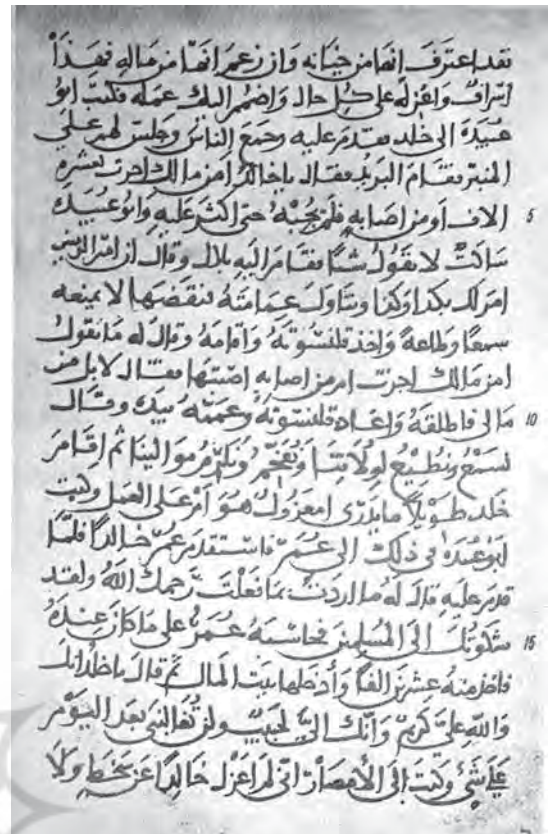 فقد اعترف انها من خيانه وان زعم انها من ماله فهذا
اسراف واعزله على كل حال واضمم اليك عمله فكتب ابو
عبيدة الى خلد فقدم عليه وجمع الناس وجلس لهم على
المنبر فقام البريد فقال يا خالد امن مالك اجزت بعشرة
الاف او من اصابه فلم يجبه حتى اكثر عليه وابو عبيدة 5
ساكت لا يقول شيا فقام اليه بلال وقال ان امير المومنين
امر لك بكذا وكذا وتناول عمامته فنقضها لا يمنعه
سمعا وطاعة واخذ قلنسوته واقامه وقال له ما تقول
امن مالك اجزت ام من اصابه اصبتها فقال لا بل من
مالى فاطلقه واعاد قلنسوته وعممه بيده وقال 10
نسمع ونطيع لولاتنا ونفخم ونكرم موالينا ثم اقام
خلد طويلا ما يدرى امعزول هو ام على العمل وكتب
ابو عبيدة فى ذلك الى عمر فاستقدم عمر خالدا فلما
قدم عليه قال له ما اردت بما فعلت رحمك الله ولقد
شكوتك الى المسلمين فحاسبه عمر على ما كان عنده 15
فاخذ منه عشرين الفا وأدخلها بيت المال ثم قال يا خلد انك
والله علي كريم وانك الي لحبيب ولن تعاتبنى بعد اليوم
على شئ وكتب الى الأمصار انى لم اعزل خالدا عن سخط ولا